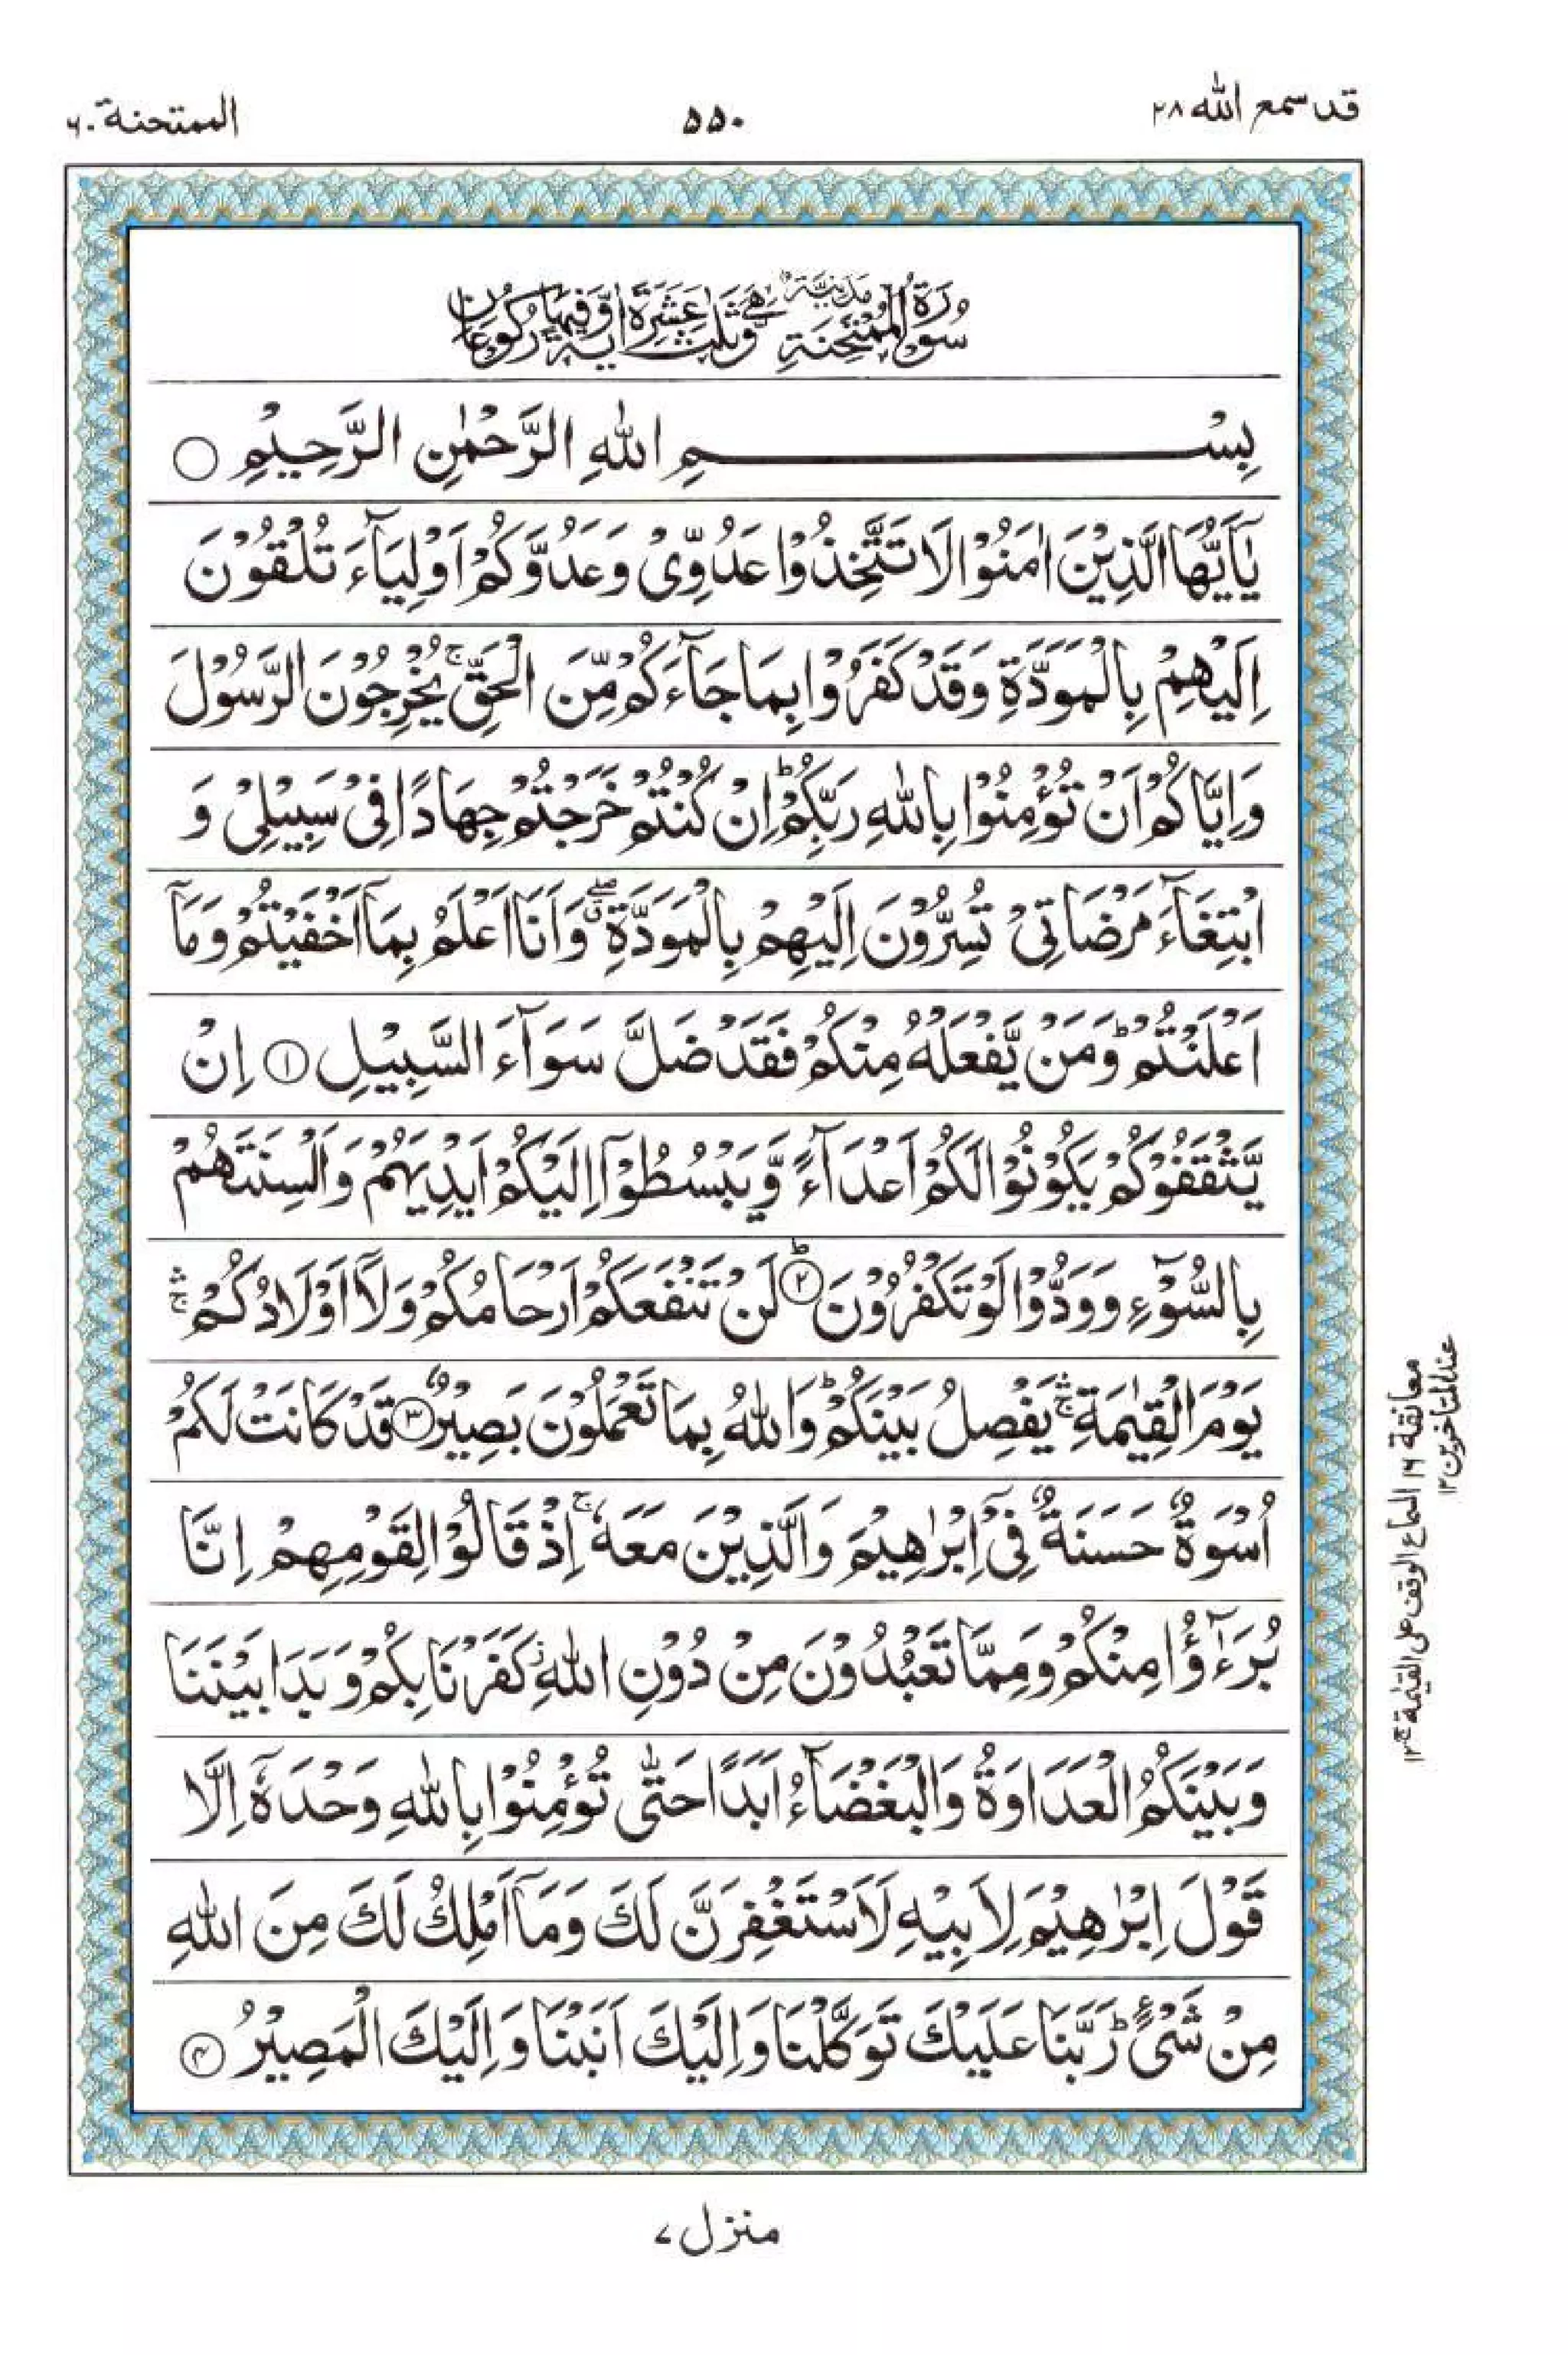 قد سمع الله ٢٨
٥٥٠
الممتحنة ٦٠
سُوْرَةُ الْمُمْتَحِنَةِ مَدَنِيَّةٌ وَّهِيَ ثَلٰثَ عَشَرَةَ اٰيَةً وَّفِيْهَا رُكُوْعَانِ
بِسْمِ اللّٰهِ الرَّحْمٰنِ الرَّحِيْمِ ○
يٰۤاَيُّهَا الَّذِيْنَ اٰمَنُوْا لَا تَتَّخِذُوْا عَدُوِّيْ وَعَدُوَّكُمْ اَوْلِيَآءَ تُلْقُوْنَ
اِلَيْهِمْ بِالْمَوَدَّةِ وَقَدْ كَفَرُوْا بِمَا جَآءَكُمْ مِّنَ الْحَقِّ ۚ يُخْرِجُوْنَ الرَّسُوْلَ
وَاِيَّاكُمْ اَنْ تُؤْمِنُوْا بِاللّٰهِ رَبِّكُمْ ؕ اِنْ كُنْتُمْ خَرَجْتُمْ جِهَادًا فِيْ سَبِيْلِيْ وَ
ابْتِغَآءَ مَرْضَاتِيْ تُسِرُّوْنَ اِلَيْهِمْ بِالْمَوَدَّةِ ۖ وَاَنَا اَعْلَمُ بِمَاۤ اَخْفَيْتُمْ وَمَاۤ
اَعْلَنْتُمْ ؕ وَمَنْ يَّفْعَلْهُ مِنْكُمْ فَقَدْ ضَلَّ سَوَآءَ السَّبِيْلِ ﴿١﴾ اِنْ
يَّثْقَفُوْكُمْ يَكُوْنُوْا لَكُمْ اَعْدَآءً وَّيَبْسُطُوْۤا اِلَيْكُمْ اَيْدِيَهُمْ وَاَلْسِنَتَهُمْ
بِالسُّوْٓءِ وَوَدُّوْا لَوْ تَكْفُرُوْنَ ﴿٢﴾ؕ لَنْ تَنْفَعَكُمْ اَرْحَامُكُمْ وَلَاۤ اَوْلَادُكُمْ ۛۚ
يَوْمَ الْقِيٰمَةِ ۛۚ يَفْصِلُ بَيْنَكُمْ ؕ وَاللّٰهُ بِمَا تَعْمَلُوْنَ بَصِيْرٌ ﴿٣﴾ قَدْ كَانَتْ لَكُمْ
اُسْوَةٌ حَسَنَةٌ فِيْۤ اِبْرٰهِيْمَ وَالَّذِيْنَ مَعَهٗ ۚ اِذْ قَالُوْا لِقَوْمِهِمْ اِنَّا
بُرَءٰٓؤُا مِنْكُمْ وَمِمَّا تَعْبُدُوْنَ مِنْ دُوْنِ اللّٰهِ ؗ كَفَرْنَا بِكُمْ وَبَدَا بَيْنَنَا
وَبَيْنَكُمُ الْعَدَاوَةُ وَالْبَغْضَآءُ اَبَدًا حَتّٰى تُؤْمِنُوْا بِاللّٰهِ وَحْدَهٗۤ اِلَّا
قَوْلَ اِبْرٰهِيْمَ لِاَبِيْهِ لَاَسْتَغْفِرَنَّ لَكَ وَمَاۤ اَمْلِكُ لَكَ مِنَ اللّٰهِ
مِنْ شَيْءٍ ؕ رَبَّنَا عَلَيْكَ تَوَكَّلْنَا وَاِلَيْكَ اَنَبْنَا وَاِلَيْكَ الْمَصِيْرُ ﴿٤﴾
معانقة ١٦ السماع الوقف على القيٰمة ج ١٢
عند المتاخرين ١٢
منزل ٧